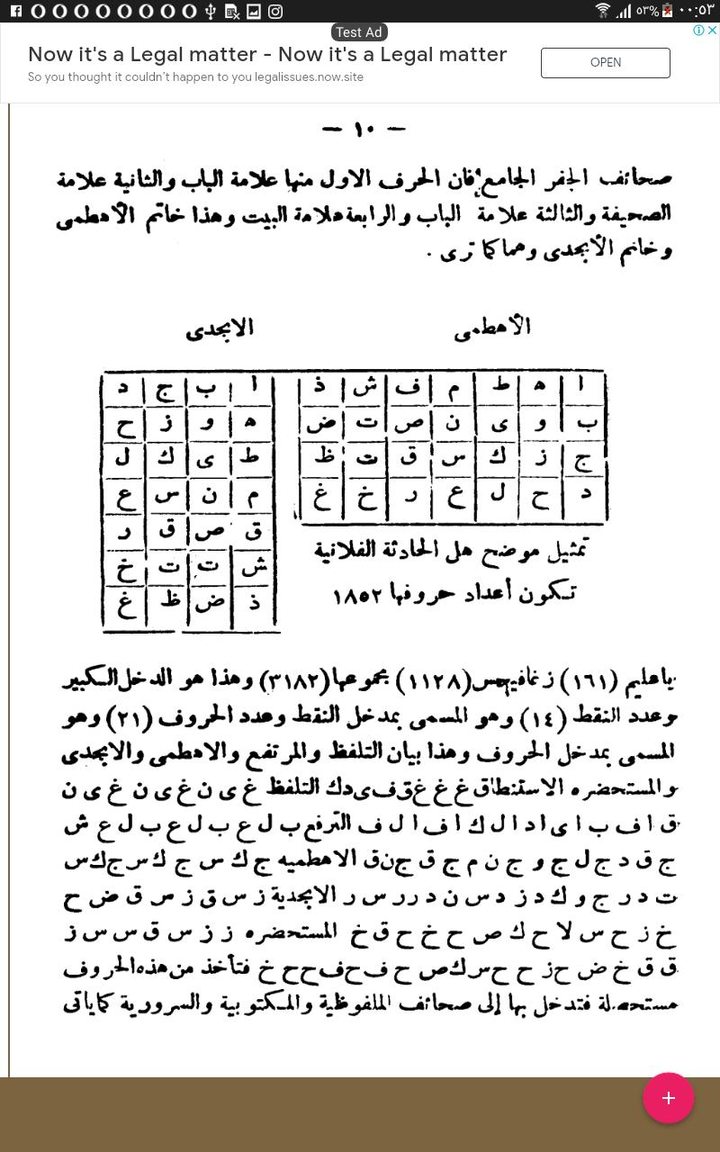 ٠٠:٥٣
٥٣%
Test Ad
Now it's a Legal matter - Now it's a Legal matter
So you thought it couldn't happen to you legalissues.now.site
OPEN
— ١٠ —
صحائف الجفر الجامع فان الحرف الاول منها علامة الباب والثانية علامة
الصحيفة والثالثة علامة الباب والرابعة علامة البيت وهذا خاتم الأهطمى
وخاتم الأبجدى وهما كما ترى .
الأهطمى
ا ه ط م ف ش ذ
ب و ى ن ص ت ض
ج ز ك س ق ت ظ
د ح ل ع ر خ غ
الابجدى
ا ب ج د
ه و ز ح
ط ى ك ل
م ن س ع
ق ص ق ر
ش ت ت خ
ذ ض ظ غ
تمثيل موضح هل الحادثة الفلانية
تكون أعداد حروفها ١٨٥٢
ياعليم (١٦١) (١١٢٨) مجموعها (٣١٨٢) وهذا هو الدخل الكبير
وعدد النقط (١٤) وهو المسمى بمدخل النقط وعدد الحروف (٢١) وهو
المسمى بمدخل الحروف وهذا بيان التلفظ والمرتفع والاهطمى والابجدى
والمستحضره الاستنطاق غ غ غ ق ف ى د ك التلفظ غ ى ن غ ى ن غ ى ن
ق ا ف ب ا ى ا د ا ل ك ا ف ا ل ف الترفع ب ل ع ب ل ع ب ل ع ب ل ع ش
ج ق د ج ل ج و ج ن م ج ق ج ن ق الاهطميه ج ك س ج ك س ج ك س
ت د ر ج و ك د ز د س ن د ر ر س ر الابجدية ز س ق ز س ق ض ح
خ ز ح س لا ح ك ص ح خ ح ق خ المستحضره ز ز س ق س س ز
ق ق خ ض ح ز ح ح س ر ك ص ح ف ح ف ح ح خ فتأخذ من هذه الحروف
مستحصلة فتدخل بها إلى صحائف الملفوظية والمكتوبية والسرورية كما ياتى